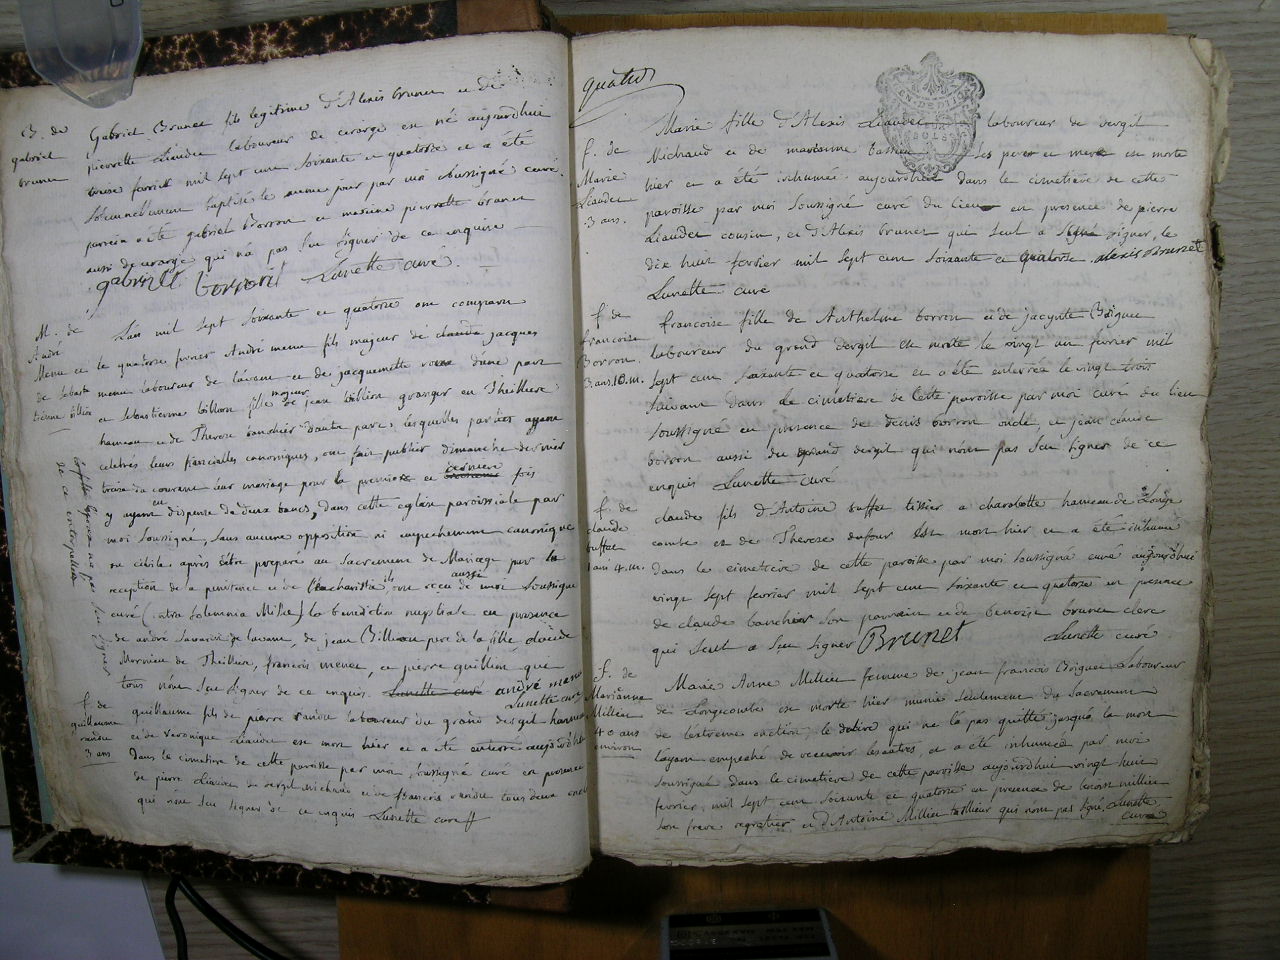 B. de
gabriel
brunet
Gabriel Brunet fils legitime d'Alexis brunet et de
pierrette Liaudet laboureur de cerarge est né aujourdhuit
treize fevrier mil sept cent soixante et quatorze et a été
solennellement baptisé le meme jour par moi soussigné curé.
parrein a été gabriel Borron et mareine pierrette brunet
aussi de cerarge qui n'a pas sçu signer de ce enquise
gabriell borroni Lunette curé.
M. de
André
Menu et
de Sebas
tienne billion
L'an mil sept soixante et quatorze ont comparu
le quatorze fevrier André menu fils majeur de claude jacques
menu laboureur de lavant et de jacquemette d'une part
et Sebastienne billion fille majeur de jean billion granger en Theillere
hameau et de Therese banchier d'autre part, lesquelles parties ayant
celebrés leurs fiancialles canoniques, ont fait publier dimanche dernier
treize du courant leur mariage pour la premiere et derniere fois
y ayant eu dispense de deux bancs, dans cette eglise paroissiale par
moi soussigné, sans aucune opposition ni empechement canonique
ou civile après s'etre preparé au Sacrement de Mariage par la
reception de a penitence et de l'eucharistie ils ont reçu aussi de moi soussigné
curé (intra solemnia Missæ) la benediction nuptiale en presence
de andré Savarin de lavant, de jean Billion pere de la fille, claude
Mornieu de Theillere, francois menet, et pierre guillion, qui
tous n'ont sçu signer de ce enquis. Lunette curé andré menu
Lunette curé
f. de
guillaume
randu
3 ans
guillaume fils de pierre randu laboureur du grand dergit hameau
et de Veronique Liaudet est mort hier et a été enterré aujourd'hui
dans le cimetiere de cette paroisse par moi soussigné curé en presence
de pierre Liaudet de dergit michaud et de francois randu tous deux oncles
qui n'ont sçu signer de ce enquis Lunette curé
quatre
f. de
Marie
Liaudet
3 ans.
Marie fille d'Alexis Liaudet laboureur de dergit
Michaud et de marianne bassieu ses pere et mere est morte
hier et a été inhumée aujourdhuit dans le cimetiere de cette
paroisse par moi soussigné curé du lieu en presence de pierre
Liaudet cousin, et d'Alexis brunet qui seul a signé signer, le
dix huit fevrier mil sept cent soixante et quatorze alexis Brunet
Lunette curé
f. de
francoise
Borron.
3 ans. 10. m.
francoise fille de Anthelme borron et de jacynte Boignet
laboureur du grand dergit est morte le vingt un fevrier mil
sept cent soixante et quatorze et a été enterrée le vingt trois
suivant dans le cimetiere de cette paroisse par moi curé du lieu
soussigné en presence de denis borron oncle, et jean claude
borron aussi du grand dergit qui n'ont pas sçu signer de ce
enquis Lunette curé
f. de
claude
buffet
1 an 4. m.
claude fils d'Antoine buffet tissier a charolotte hameau de Longe
combe et de Therese dufour est mort hier et a été inhumé
dans le cimetiere de cette paroisse par moi soussigné curé aujourdhui
vingt sept fevrier mil sept cent soixante et quatorze en presence
de claude banchier son parrain et de benoist brunet clerc
qui seul a sçu signer Brunet Lunette curé.
f. de
Marianne
Millieu
40 ans
environ
Marie Anne Millieu femme de jean francois Boignet Laboureur
de Longecombe est morte hier munie seulement du Sacrement
de lextreme onction; le delire qui ne la pas quitté jusqu'a la mort
l'ayant empeché de recevoir les autres et a été inhumée par moi
soussigné dans le cimetiere de cette paroisse aujourdhui vingt huit
fevrier, mil sept cent soixante et quatorze en presence de benoist millieu
son frere regratier et d'Antoine Millieu taillieur qui n'ont pas signé, Lunette
curé